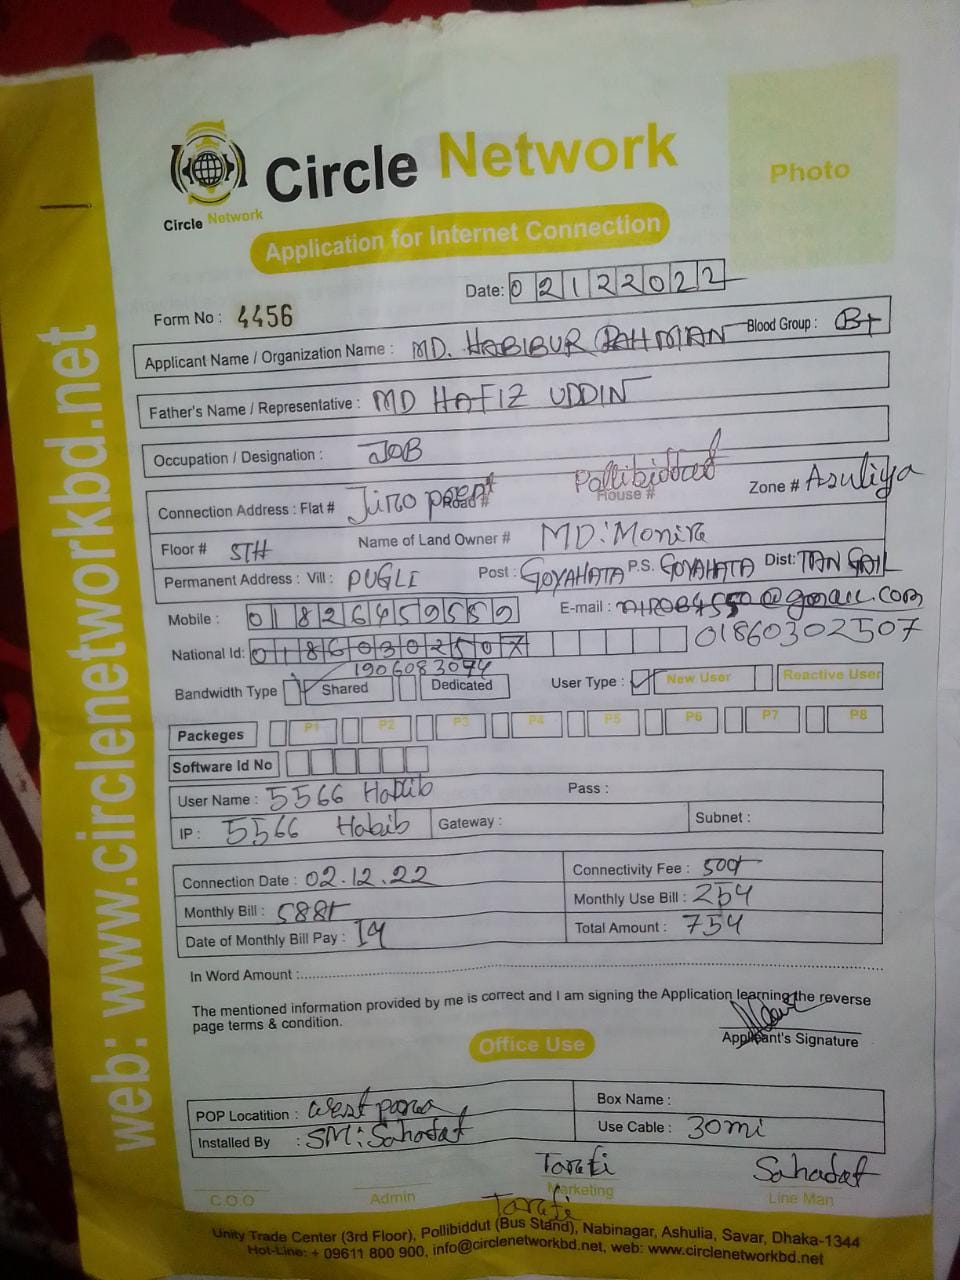 Circle Network
Circle Network
Photo
Application for Internet Connection
Date: 02122022
Form No : 4456
Applicant Name / Organization Name : MD. HABIBUR RAHMAN Blood Group : B+
Father's Name / Representative : MD HAFIZ UDDIN
Occupation / Designation : JOB
Connection Address : Flat # Jiro Road # House # Zone # Asuliya
Floor # 5TH Name of Land Owner # MD: Monire
Permanent Address : Vill : PUGLI Post : GOYAHATA P.S. GOYAHATA Dist: TAN GAIL
Mobile : 01826459559 E-mail : @gmail.com
National Id: 01860302507 01860302507
1906083074
Bandwidth Type Shared Dedicated User Type : New User Reactive User
Packeges P1 P2 P3 P4 P5 P6 P7 P8
Software Id No
User Name : 5566 Habib Pass :
IP : 5566 Habib Gateway : Subnet :
Connection Date : 02.12.22 Connectivity Fee : 500
Monthly Bill : 588 Monthly Use Bill : 254
Date of Monthly Bill Pay : 19 Total Amount : 754
In Word Amount :
The mentioned information provided by me is correct and I am signing the Application learning the reverse
page terms & condition.
Applicant's Signature
Office Use
POP Locatition : West para Box Name :
Installed By : SM: Sahadat Use Cable : 30mi
Tarafi Sahadat
C.O.O Admin Marketing Line Man
Tarafi
Unity Trade Center (3rd Floor), Pollibiddut (Bus Stand), Nabinagar, Ashulia, Savar, Dhaka-1344
Hot-Line: + 09611 800 900, info@circlenetworkbd.net, web: www.circlenetworkbd.net
web: www.circlenetworkbd.net